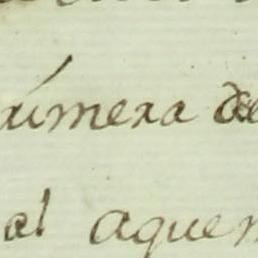 rimera de
al aquen